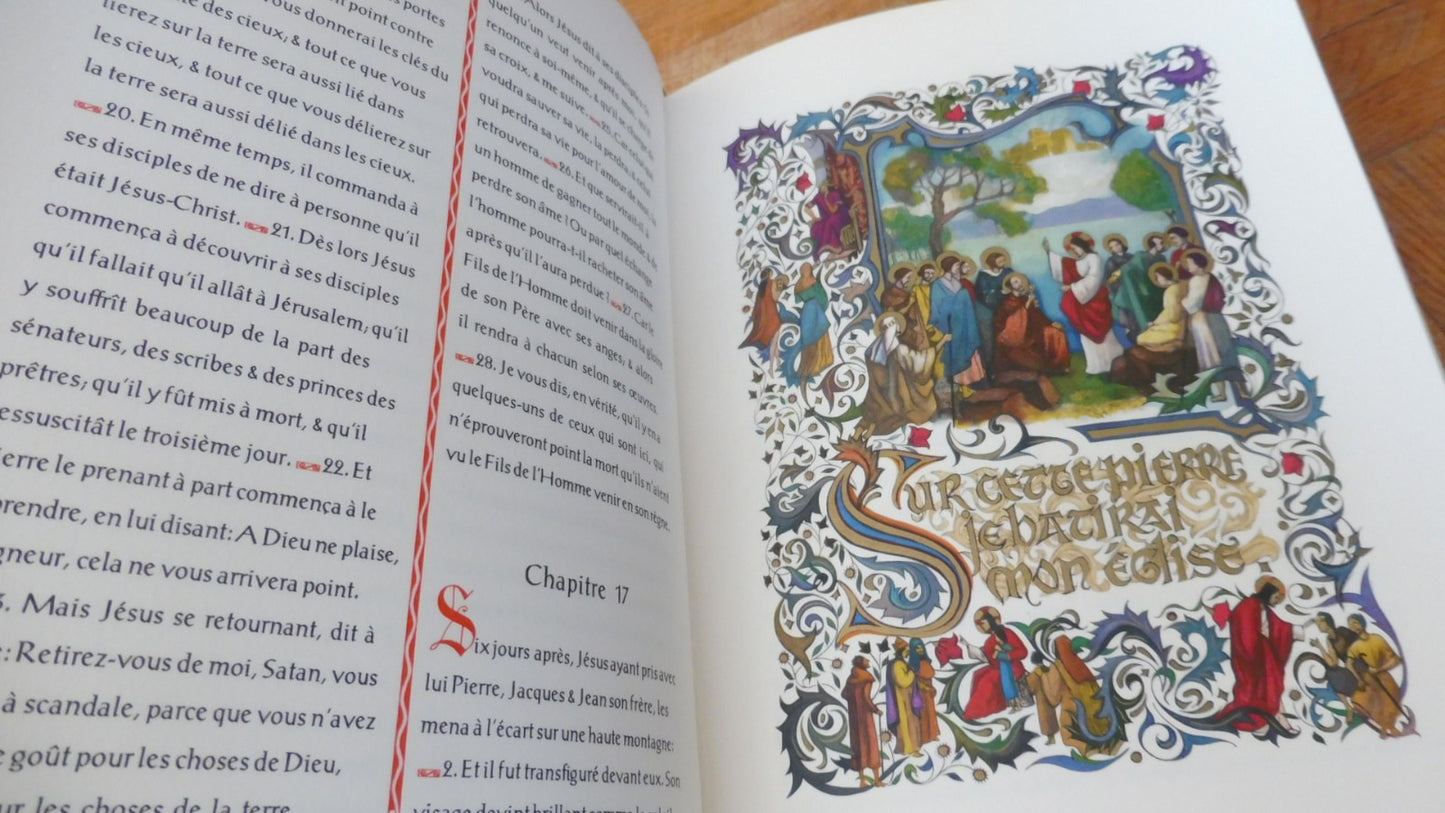 portes
ous donnerai point contre
te des cieux, & tout ce que vous
les clés du
lierez sur la terre sera aussi lié dans
les cieux, & tout ce que vous délierez sur
la terre sera aussi délié dans les cieux.
20. En même temps, il commanda à
ses disciples de ne dire à personne qu'il
était Jésus-Christ. 21. Dès lors Jésus
commença à découvrir à ses disciples
qu'il fallait qu'il allât à Jérusalem; qu'il
y souffrît beaucoup de la part des
sénateurs, des scribes & des princes des
prêtres; qu'il y fût mis à mort, & qu'il
essuscitât le troisième jour. 22. Et
ierre le prenant à part commença à le
prendre, en lui disant: A Dieu ne plaise,
gneur, cela ne vous arrivera point.
3. Mais Jésus se retournant, dit à
e: Retirez-vous de moi, Satan, vous
à scandale, parce que vous n'avez
e goût pour les choses de Dieu,
ur les choses de la terre
Alors Jésus dit à ses disciples
quelqu'un veut venir après moi, qu'il
renonce à soi-même, & qu'il se charge de
sa croix, & me suive. 25. Car celui qui
voudra sauver sa vie, la perdra; & celui
qui perdra sa vie pour l'amour de moi, la
retrouvera. 26. Et que servirait-il à
un homme de gagner tout le monde, & de
perdre son âme? Ou par quel échange
l'homme pourra-t-il racheter son âme
après qu'il l'aura perdue! 27. Car le
Fils de l'Homme doit venir dans la gloire
de son Père avec ses anges; & alors
il rendra à chacun selon ses œuvres.
28. Je vous dis, en vérité, qu'il y en a
quelques-uns de ceux qui sont ici, qui
n'éprouveront point la mort qu'ils n'aient
vu le Fils de l'Homme venir en son règne.
Chapitre 17
Six jours après, Jésus ayant pris avec
lui Pierre, Jacques & Jean son frère, les
mena à l'écart sur une haute montagne:
2. Et il fut transfiguré devant eux. Son
visage devint brillant comme le soleil
Sur cette pierre
je batirai
mon église